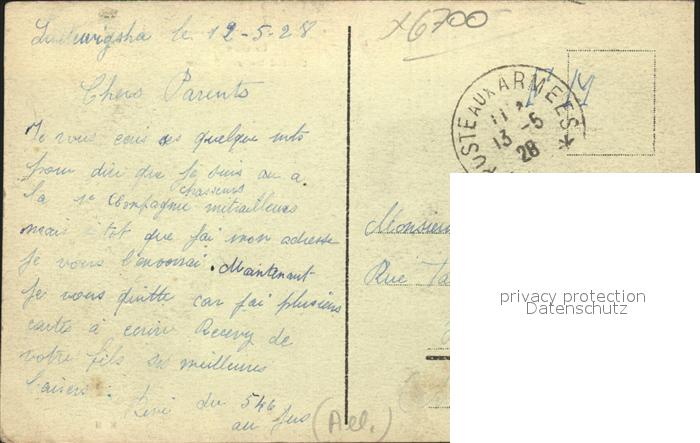 Ludwigsha le 12-5-28
Chers Parents
Je vous ecris ces quelque mts
pour dire que je suis au a.
la 1e Compagnie chasseurs mitrailleurs
mais sitot que j'ai mon adresse
je vous l'enverrai. Maintenant
je vous quitte car j'ai plusieurs
cartes à ecrire Recevez de
votre fils ses meilleures
baisers.
René du 546
au jus (All.)
X6700
F M
POSTE AUX ARMEES *
11
13 -5
28
Monsieur
Rue
privacy protection
Datenschutz